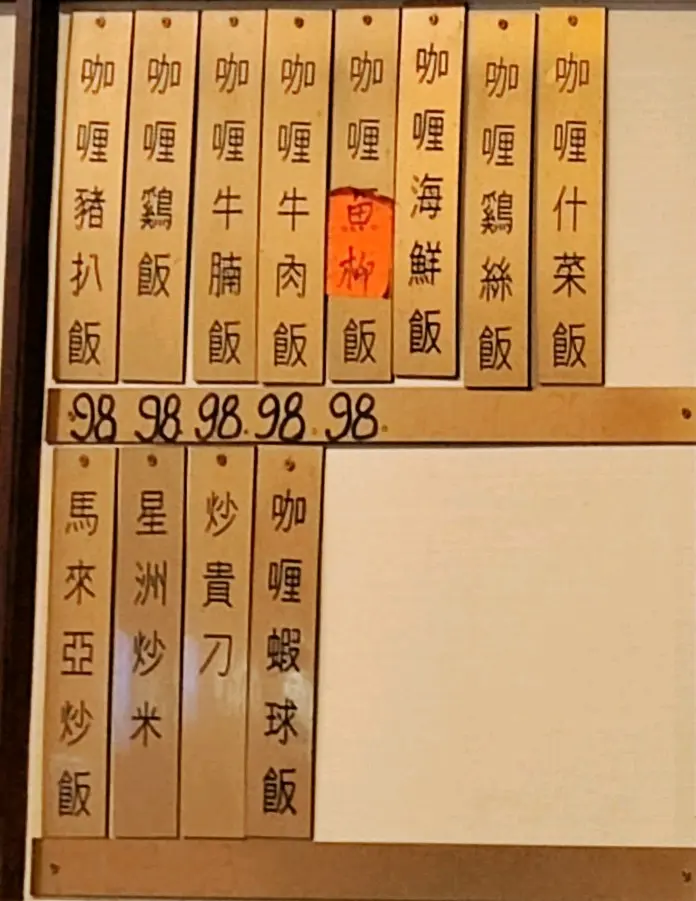 咖喱豬扒飯
咖喱鷄飯
咖喱牛腩飯
咖喱牛肉飯
咖喱魚柳飯
咖喱海鮮飯
咖喱鷄絲飯
咖喱什菜飯
98 98. 98. 98. 98.
馬來亞炒飯
星洲炒米
炒貴刀
咖喱蝦球飯